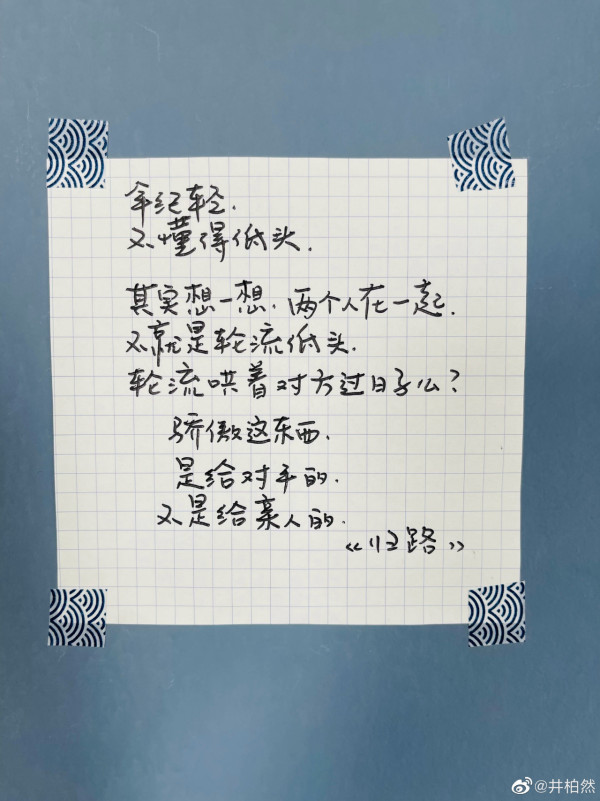 年纪轻.
不懂得低头.
其实想一想.两个人在一起.
不就是轮流低头.
轮流哄着对方过日子么?
骄傲这东西.
是给对手的.
不是给亲人的.
《归路》
@井柏然